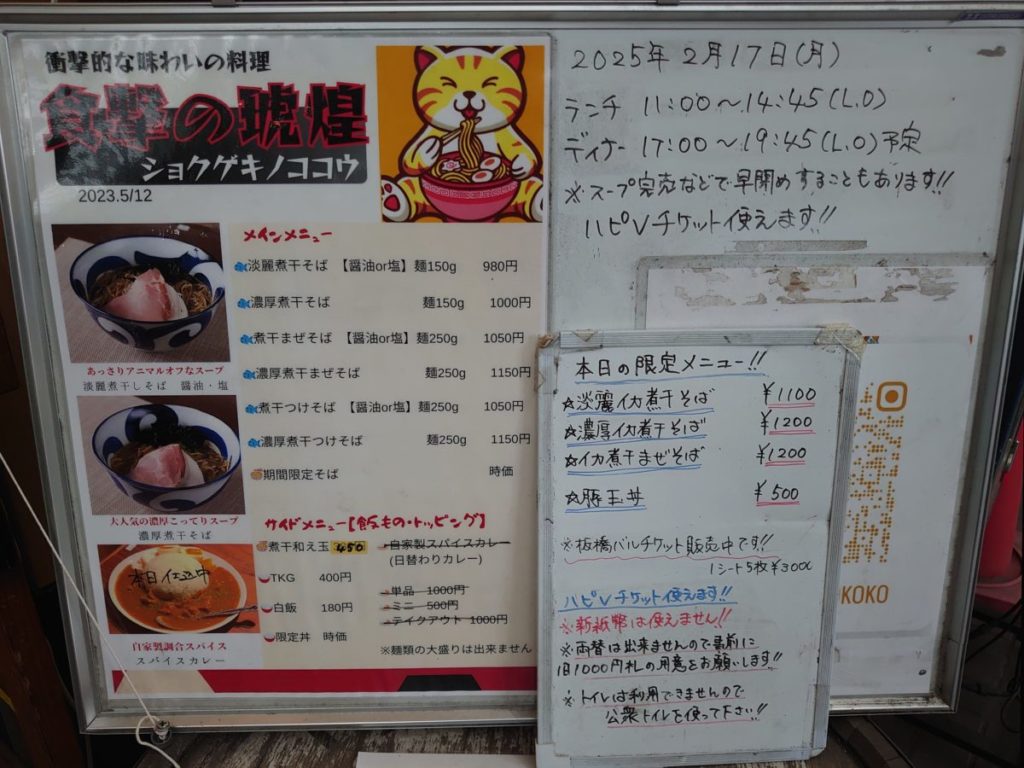 衝撃的な味わいの料理
食撃の琥煌
ショクゲキノココウ
2023.5/12
メインメニュー
淡麗煮干そば 【醤油or塩】麺150g 980円
濃厚煮干そば 麺150g 1000円
煮干まぜそば 【醤油or塩】麺250g 1050円
濃厚煮干まぜそば 麺250g 1150円
煮干つけそば 【醤油or塩】麺250g 1050円
濃厚煮干つけそば 麺250g 1150円
期間限定そば 時価
あっさりアニマルオフなスープ
淡麗煮干しそば 醤油・塩
大人気の濃厚こってりスープ
濃厚煮干そば
本日仕込中
自家製調合スパイス
スパイスカレー
サイドメニュー【飯もの・トッピング】
煮干和え玉 450
TKG 400円
白飯 180円
限定丼 時価
自家製スパイスカレー
(日替わりカレー)
単品 1000円
ミニ 500円
テイクアウト 1000円
※麺類の大盛りは出来ません
2025年2月17日(月)
ランチ 11:00～14:45(L.O)
ディナー 17:00～19:45(L.O)予定
※スープ完売などで早閉めすることもあります!!
ハピVチケット使えます!!
本日の限定メニュー!!
☆淡麗イカ煮干そば ¥1100
☆濃厚イカ煮干そば ¥1200
☆イカ煮干まぜそば ¥1200
☆豚玉丼 ¥500
※板橋バルチケット販売中です!!
1シート5枚¥3000
ハピVチケット使えます!!
※新紙幣は使えません!!
※両替は出来ませんので事前に
旧1000円札の用意をお願いします!!
※トイレは利用できませんので
公衆トイレを使って下さい!!
KOKO